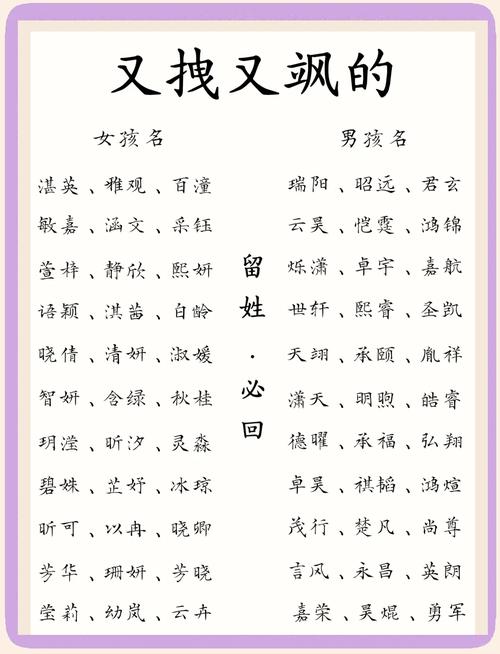 又拽又飒的
女孩名
湛英、雅观、百潼
敏嘉、涵文、采钰
萱梓、静欣、熙妍
语颖、淇茜、白龄
晓倩、清妍、淑媛
智妍、含绿、秋桂
玥滢、昕汐、灵淼
碧姝、芷妤、冰琼
昕可、以冉、晓卿
芳华、珊妍、芳晓
莹莉、幼岚、云卉
留姓·必回
男孩名
瑞阳、昭远、君玄
云昊、恺霆、鸿锦
烁潇、卓宇、嘉航
世轩、熙睿、圣凯
天翊、承颐、胤祥
潇天、明煦、皓睿
德曜、承福、弘翔
卓昊、祺韬、鸿煊
茂行、楚凡、尚尊
言风、永昌、英朗
嘉荣、昊焜、勇军